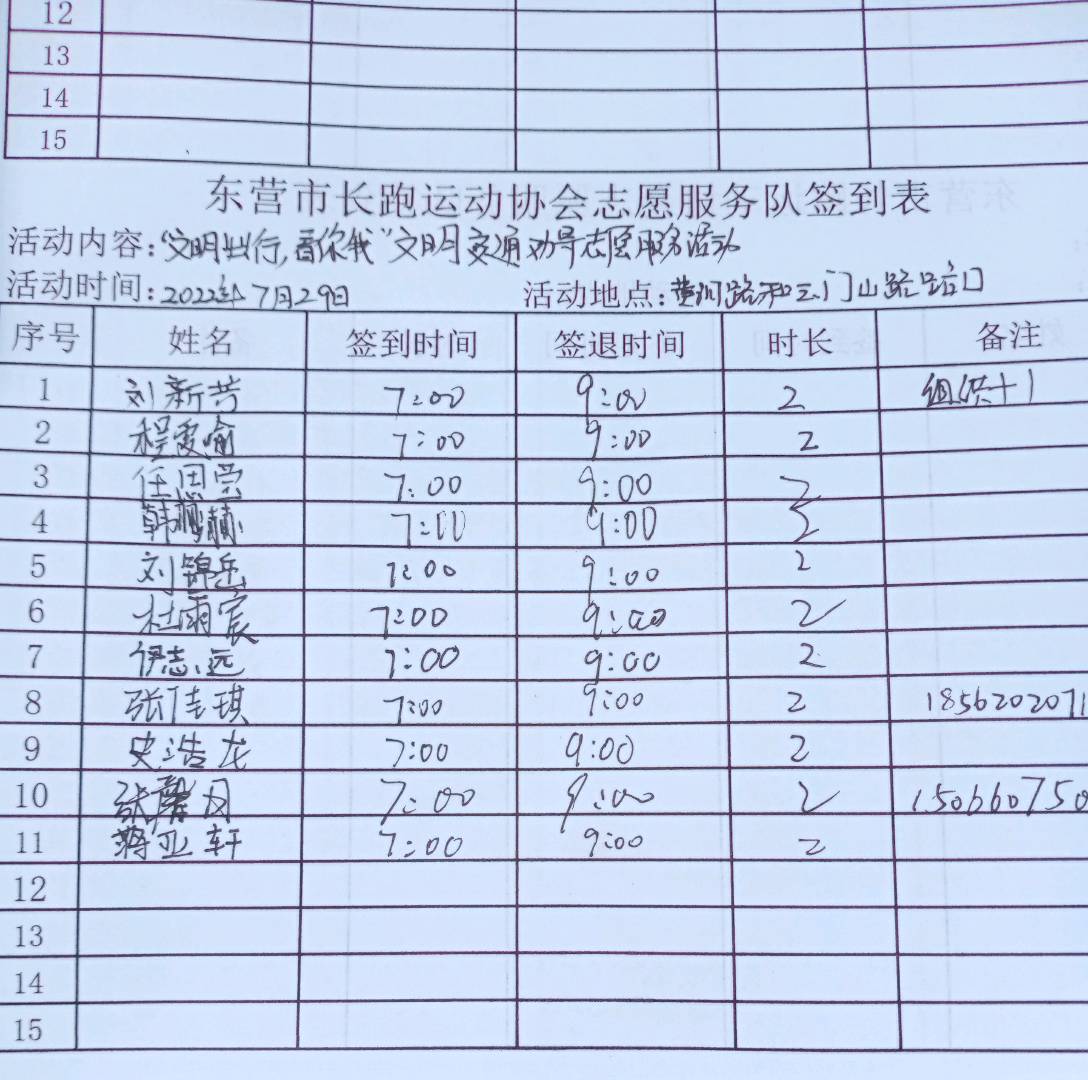 12
13
14
15
东营市长跑运动协会志愿服务队签到表
活动内容:“文明出行,看你我”文明交通劝导志愿服务活动
活动时间:2022年7月29日 活动地点:黄河路和三门山路路口
序号 姓名 签到时间 签退时间 时长 备注
1 刘新芳 7:00 9:00 2 组织+1
2 程爱喻 7:00 9:00 2
3 任田营 7:00 9:00 2
4 韩 赫 7:00 9:00 2
5 刘锦岳 7:00 9:00 2
6 杜雨宸 7:00 9:00 2
7 伊志远 7:00 9:00 2
8 张佳琪 7:00 9:00 2 1856202071
9 史浩龙 7:00 9:00 2
10 张馨月 7:00 9:00 2 150660750
11 蒋亚轩 7:00 9:00 2
12
13
14
15